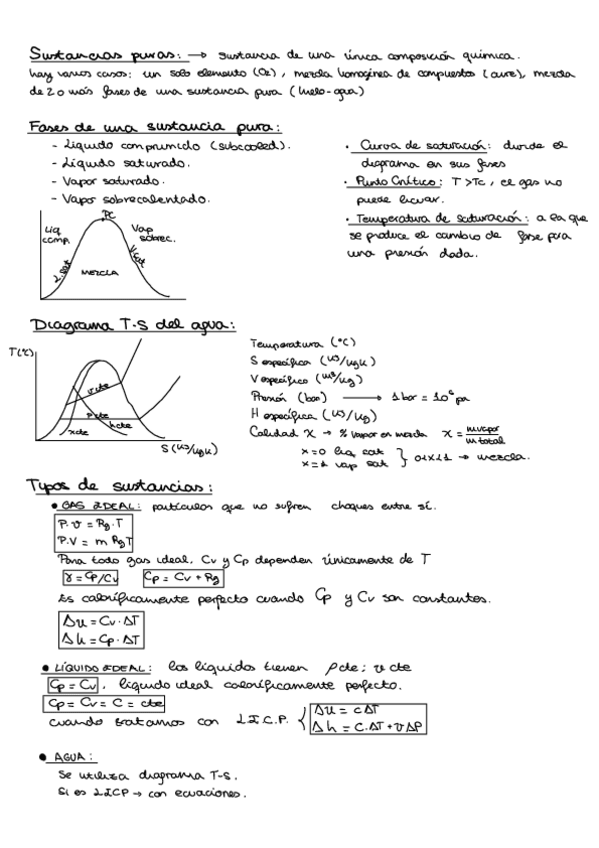 Sustancias puras: → sustancia de una única composición química.
hay varios casos: un solo elemento (O2), mezcla homogénea de compuestos (aire), mezcla
de 2 o más fases de una sustancia pura (hielo-agua)
Fases de una sustancia pura:
- Líquido comprimido (subcooled).
- Líquido saturado.
- Vapor saturado.
- Vapor sobrecalentado.
• Curva de saturación: divide el
diagrama en sus fases
• Punto Crítico: T > Tc, el gas no
puede licuar.
• Temperatura de saturación: a la que
se produce el cambio de fase para
una presión dada.
PC
Liq
comp.
Vap
sobrec.
L. sat
V sat
MEZCLA
Diagrama T-S del agua:
T(ºC)
v cte
P cte
h cte
x cte
S (kJ/kgK)
Temperatura (ºC)
S específica (kJ/kgK)
V específico (m³/kg)
Presión (bar) → 1 bar = 10⁶ pa
H específica (kJ/kg)
Calidad X → % vapor en mezcla x = m vapor / m total
x=0 liq sat
x=1 vap sat } 0<x<1 → mezcla.
Tipos de sustancias:
• GAS IDEAL: partículas que no sufren choques entre sí.
P.v = Rg.T
P.V = m RgT
Para todo gas ideal, Cv y Cp dependen únicamente de T
γ = Cp/Cv Cp = Cv + Rg
Es caloríficamente perfecto cuando Cp y Cv son constantes.
Δu = Cv · ΔT
Δh = Cp · ΔT
• LÍQUIDO IDEAL: los líquidos tienen ρ cte; v cte
Cp = Cv, líquido ideal caloríficamente perfecto.
Cp = Cv = C = cte
cuando tratamos con L.I.C.P. { Δu = cΔT
Δh = C.ΔT + vΔP
• AGUA:
Se utiliza diagrama T-S.
Si es LICP → con ecuaciones.